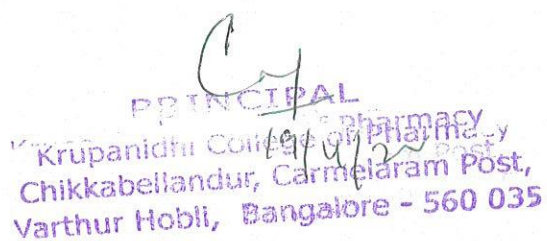 PRINCIPAL
Krupanidhi College of Pharmacy
19/4/22
Chikkabellandur, Carmelaram Post,
Varthur Hobli, Bangalore - 560 035